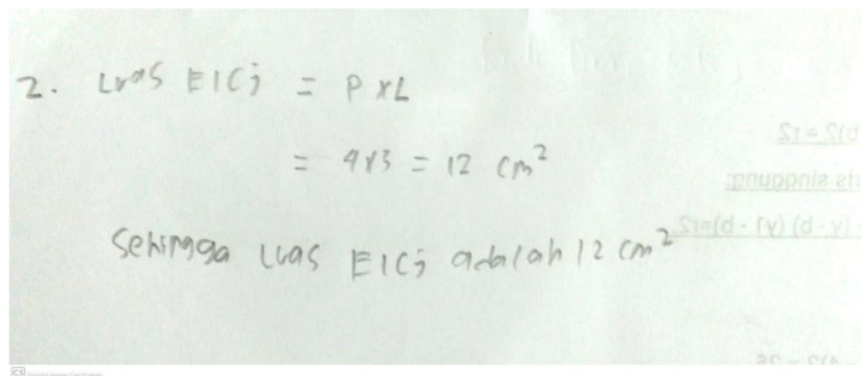 2. Luas EICj = P x L
= 4x3 = 12 cm²
Sehingga luas EICj adalah 12 cm²